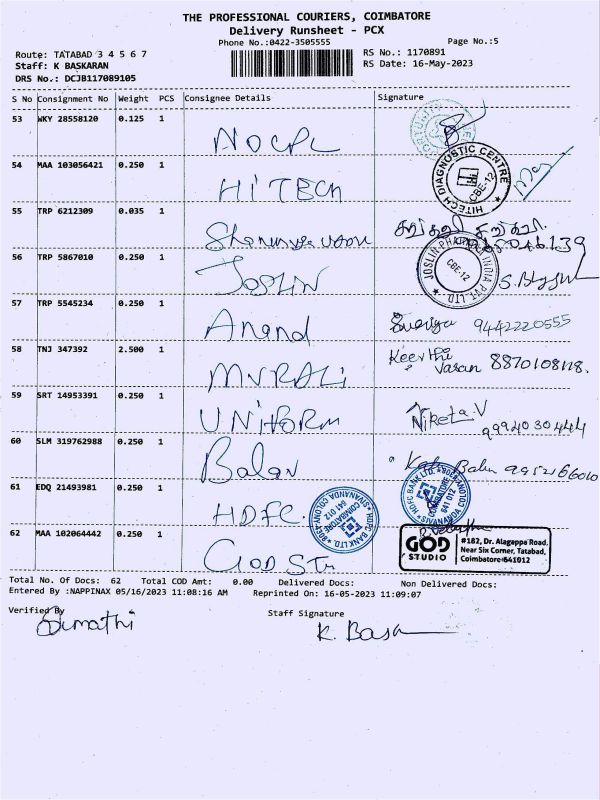 THE PROFESSIONAL COURIERS, COIMBATORE
Delivery Runsheet - PCX
Phone No.:0422-3505555
Page No.:5
Route: TATABAD 3 4 5 6 7
RS No.: 1170891
Staff: K BASKARAN
RS Date: 16-May-2023
DRS No.: DCJB117089105
S No Consignment No Weight PCS Consignee Details Signature
53 WKY 28558120 0.125 1 NOCPL
54 MAA 103056421 0.250 1 HITECH
HITECH DIAGNOSTIC CENTRE CBE-12
55 TRP 6212309 0.035 1
56 TRP 5867010 0.250 1 JOSLIN
JOSLIN PHARMA INDIA PVT. LTD. CBE-12
57 TRP 5545234 0.250 1 Anand 9442220555
58 TNJ 347392 2.500 1 MURALI Keerthi Vasan 8870108118.
59 SRT 14953391 0.250 1 UNIFORM Niketa V
60 SLM 319762988 0.250 1 Balan
61 EDQ 21493981 0.250 1 HDFC
HDFC BANK LTD. SIVANANDA COLONY COIMBATORE 641 012
HDFC BANK LTD. SIVANANDA COLONY COIMBATORE 641 012
62 MAA 102064442 0.250 1 GOD ST
GOD STUDIO
#182, Dr. Alageppa Road,
Near Six Corner, Tatabad,
Coimbatore-641012
Total No. Of Docs: 62 Total COD Amt: 0.00 Delivered Docs: Non Delivered Docs:
Entered By :NAPPINAX 05/16/2023 11:08:16 AM Reprinted On: 16-05-2023 11:09:07
Verified By
Staff Signature
K. Bask